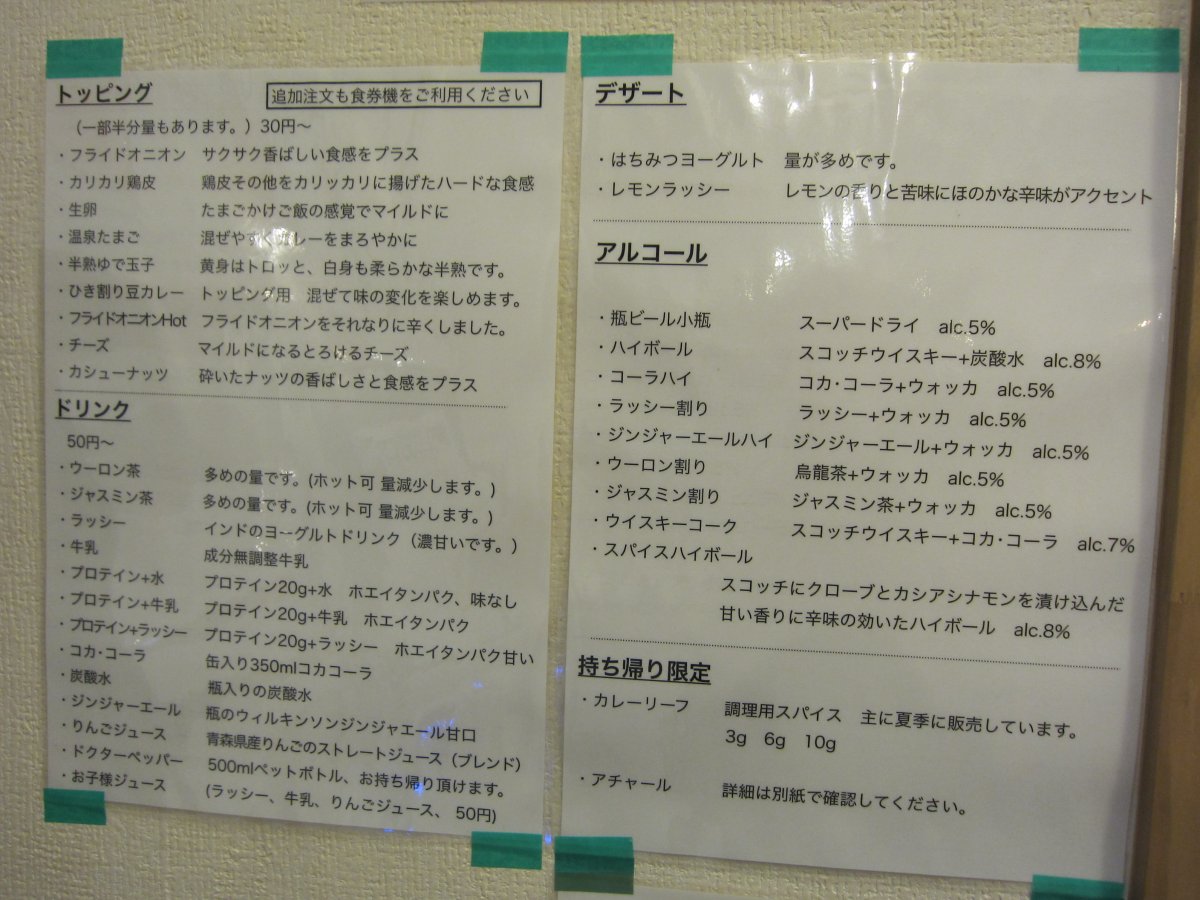 トッピング 追加注文も食券機をご利用ください
（一部半分量もあります。）30円〜
・フライドオニオン サクサク香ばしい食感をプラス
・カリカリ鶏皮 鶏皮その他をカリッカリに揚げたハードな食感
・生卵 たまごかけご飯の感覚でマイルドに
・温泉たまご 混ぜやすくカレーをまろやかに
・半熟ゆで玉子 黄身はトロッと、白身も柔らかな半熟です。
・ひき割り豆カレー トッピング用、混ぜて味の変化を楽しめます。
・フライドオニオンHot フライドオニオンをそれなりに辛くしました。
・チーズ マイルドになるとろけるチーズ
・カシューナッツ 砕いたナッツの香ばしさと食感をプラス
ドリンク
50円〜
・ウーロン茶 多めの量です。(ホット可 量減少します。)
・ジャスミン茶 多めの量です。(ホット可 量減少します。)
・ラッシー インドのヨーグルトドリンク（濃甘いです。）
・牛乳 成分無調整牛乳
・プロテイン+水 プロテイン20g+水 ホエイタンパク、味なし
・プロテイン+牛乳 プロテイン20g+牛乳 ホエイタンパク
・プロテイン+ラッシー プロテイン20g+ラッシー ホエイタンパク甘い
・コカ･コーラ 缶入り350mlコカコーラ
・炭酸水 瓶入りの炭酸水
・ジンジャーエール 瓶のウィルキンソンジンジャエール甘口
・りんごジュース 青森県産りんごのストレートジュース（ブレンド）
・ドクターペッパー 500mlペットボトル、お持ち帰り頂けます。
・お子様ジュース (ラッシー、牛乳、りんごジュース、 50円)
デザート
・はちみつヨーグルト 量が多めです。
・レモンラッシー レモンの香りと苦味にほのかな辛味がアクセント
アルコール
・瓶ビール小瓶 スーパードライ alc.5%
・ハイボール スコッチウイスキー+炭酸水 alc.8%
・コーラハイ コカ･コーラ+ウォッカ alc.5%
・ラッシー割り ラッシー+ウォッカ alc.5%
・ジンジャーエールハイ ジンジャーエール+ウォッカ alc.5%
・ウーロン割り 烏龍茶+ウォッカ alc.5%
・ジャスミン割り ジャスミン茶+ウォッカ alc.5%
・ウイスキーコーク スコッチウイスキー+コカ･コーラ alc.7%
・スパイスハイボール
スコッチにクローブとカシアシナモンを漬け込んだ
甘い香りに辛味の効いたハイボール alc.8%
持ち帰り限定
・カレーリーフ 調理用スパイス 主に夏季に販売しています。
3g 6g 10g
・アチャール 詳細は別紙で確認してください。